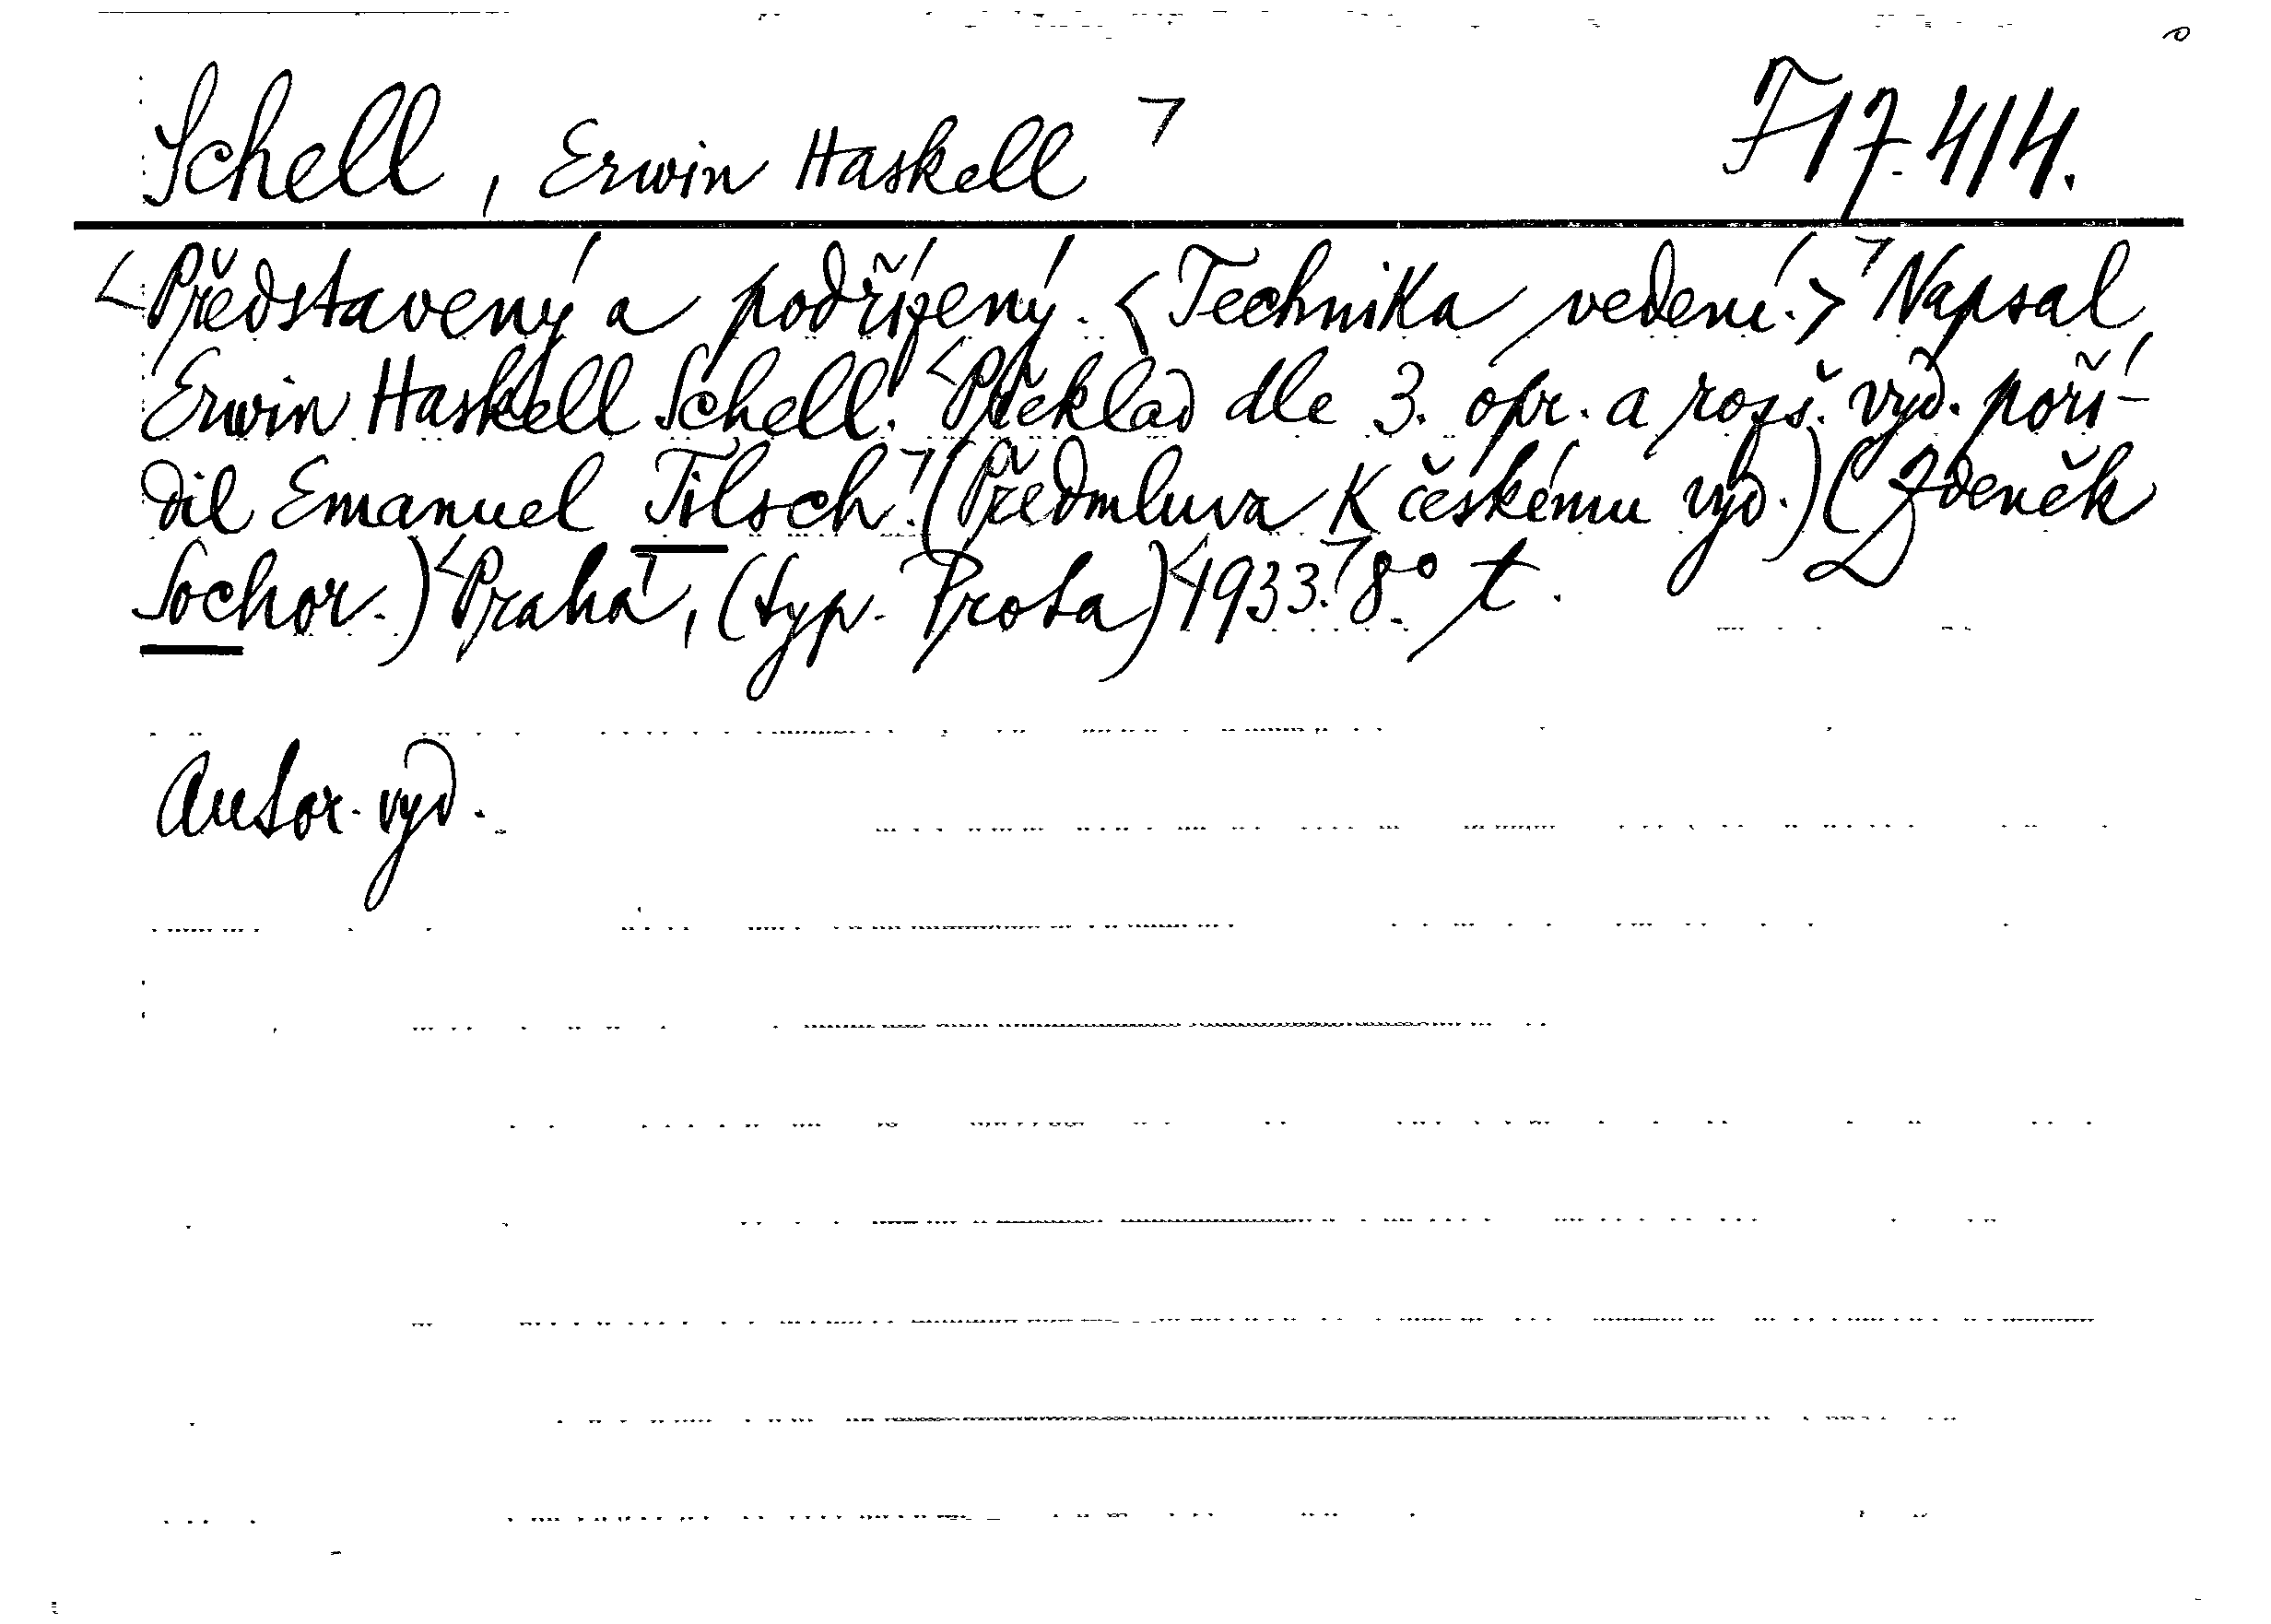 Schell, Erwin Haskell ꓶ F 17.414.
<Představený a podřízený. <Technika vedení.>ꓶ Napsal
Erwin Haskell Schell. <Překlad dle 3. opr. a rozš. vyd. poří-
dil Emanuel Tilsch.ꓶ (Předmluva k českému vyd.) (Zdeněk
Sochor.) <Prahaꓶ, (typ. Prota) <1933.ꓶ 8.° t.
Autor. vyd.